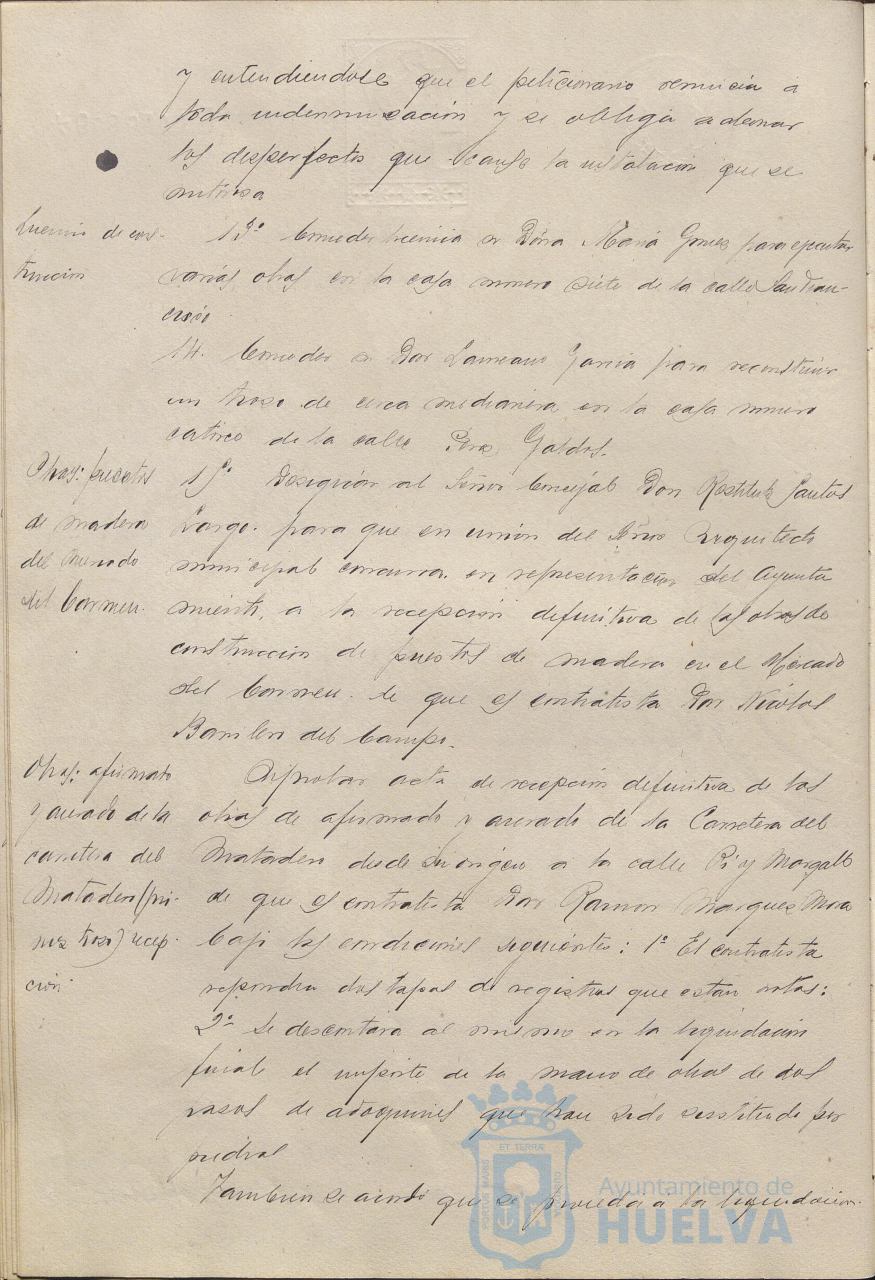 y entendiendose que el peticionario renuncia á
toda indemnización y se obliga a abonar
los desperfectos que cause la instalación que se
autorisa
Licencia de cons-
trucción
13º Conceder licencia a Doña Maria Gomez para ejecutar
varias obras en la casa numero siete de la calle San Fran-
cisco.
14. Conceder a Don Laureano Garcia para reconstruir
un trozo de cerca medianera en la casa numero
catorce de la calle Perez Galdos.
Obras: puestos
de madera
del Mercado
del Carmen.
15º Designar al Señor Concejal Don Restituto Santos
Largo. para que en unión del Señor Arquitecto
municipal concurra en representación del Ayunta
miento, a la recepción definitiva de las obras de
construcción de puestos de madera en el Mercado
del Carmen. de que es contratista Don Nicolas
Barrilero del Campo.
Obras: afirmado
y acerado de la
carretera del
Matadero (pri-
mer trozo) recep-
ción.
Aprobar acta de recepción definitiva de las
obras de afirmado y acerado de la Carretera del
Matadero desde su origen a la calle Pi y Margall
de que es contratista Don Ramon Marquez Mora
bajo las condiciones siguientes: 1ª El contratista
repondra dos tapas de registros que estan rotas:
2ª Se descontara al mismo en la liquidación
final el importe de la mano de obra de dos
vasos de adoquines que han sido sustituido por
piedras
Tambien se acordó que se proceda a la liquidación.
ET TERRÆ
PORTUS MARIS
CUSTODIA
Ayuntamiento de
HUELVA